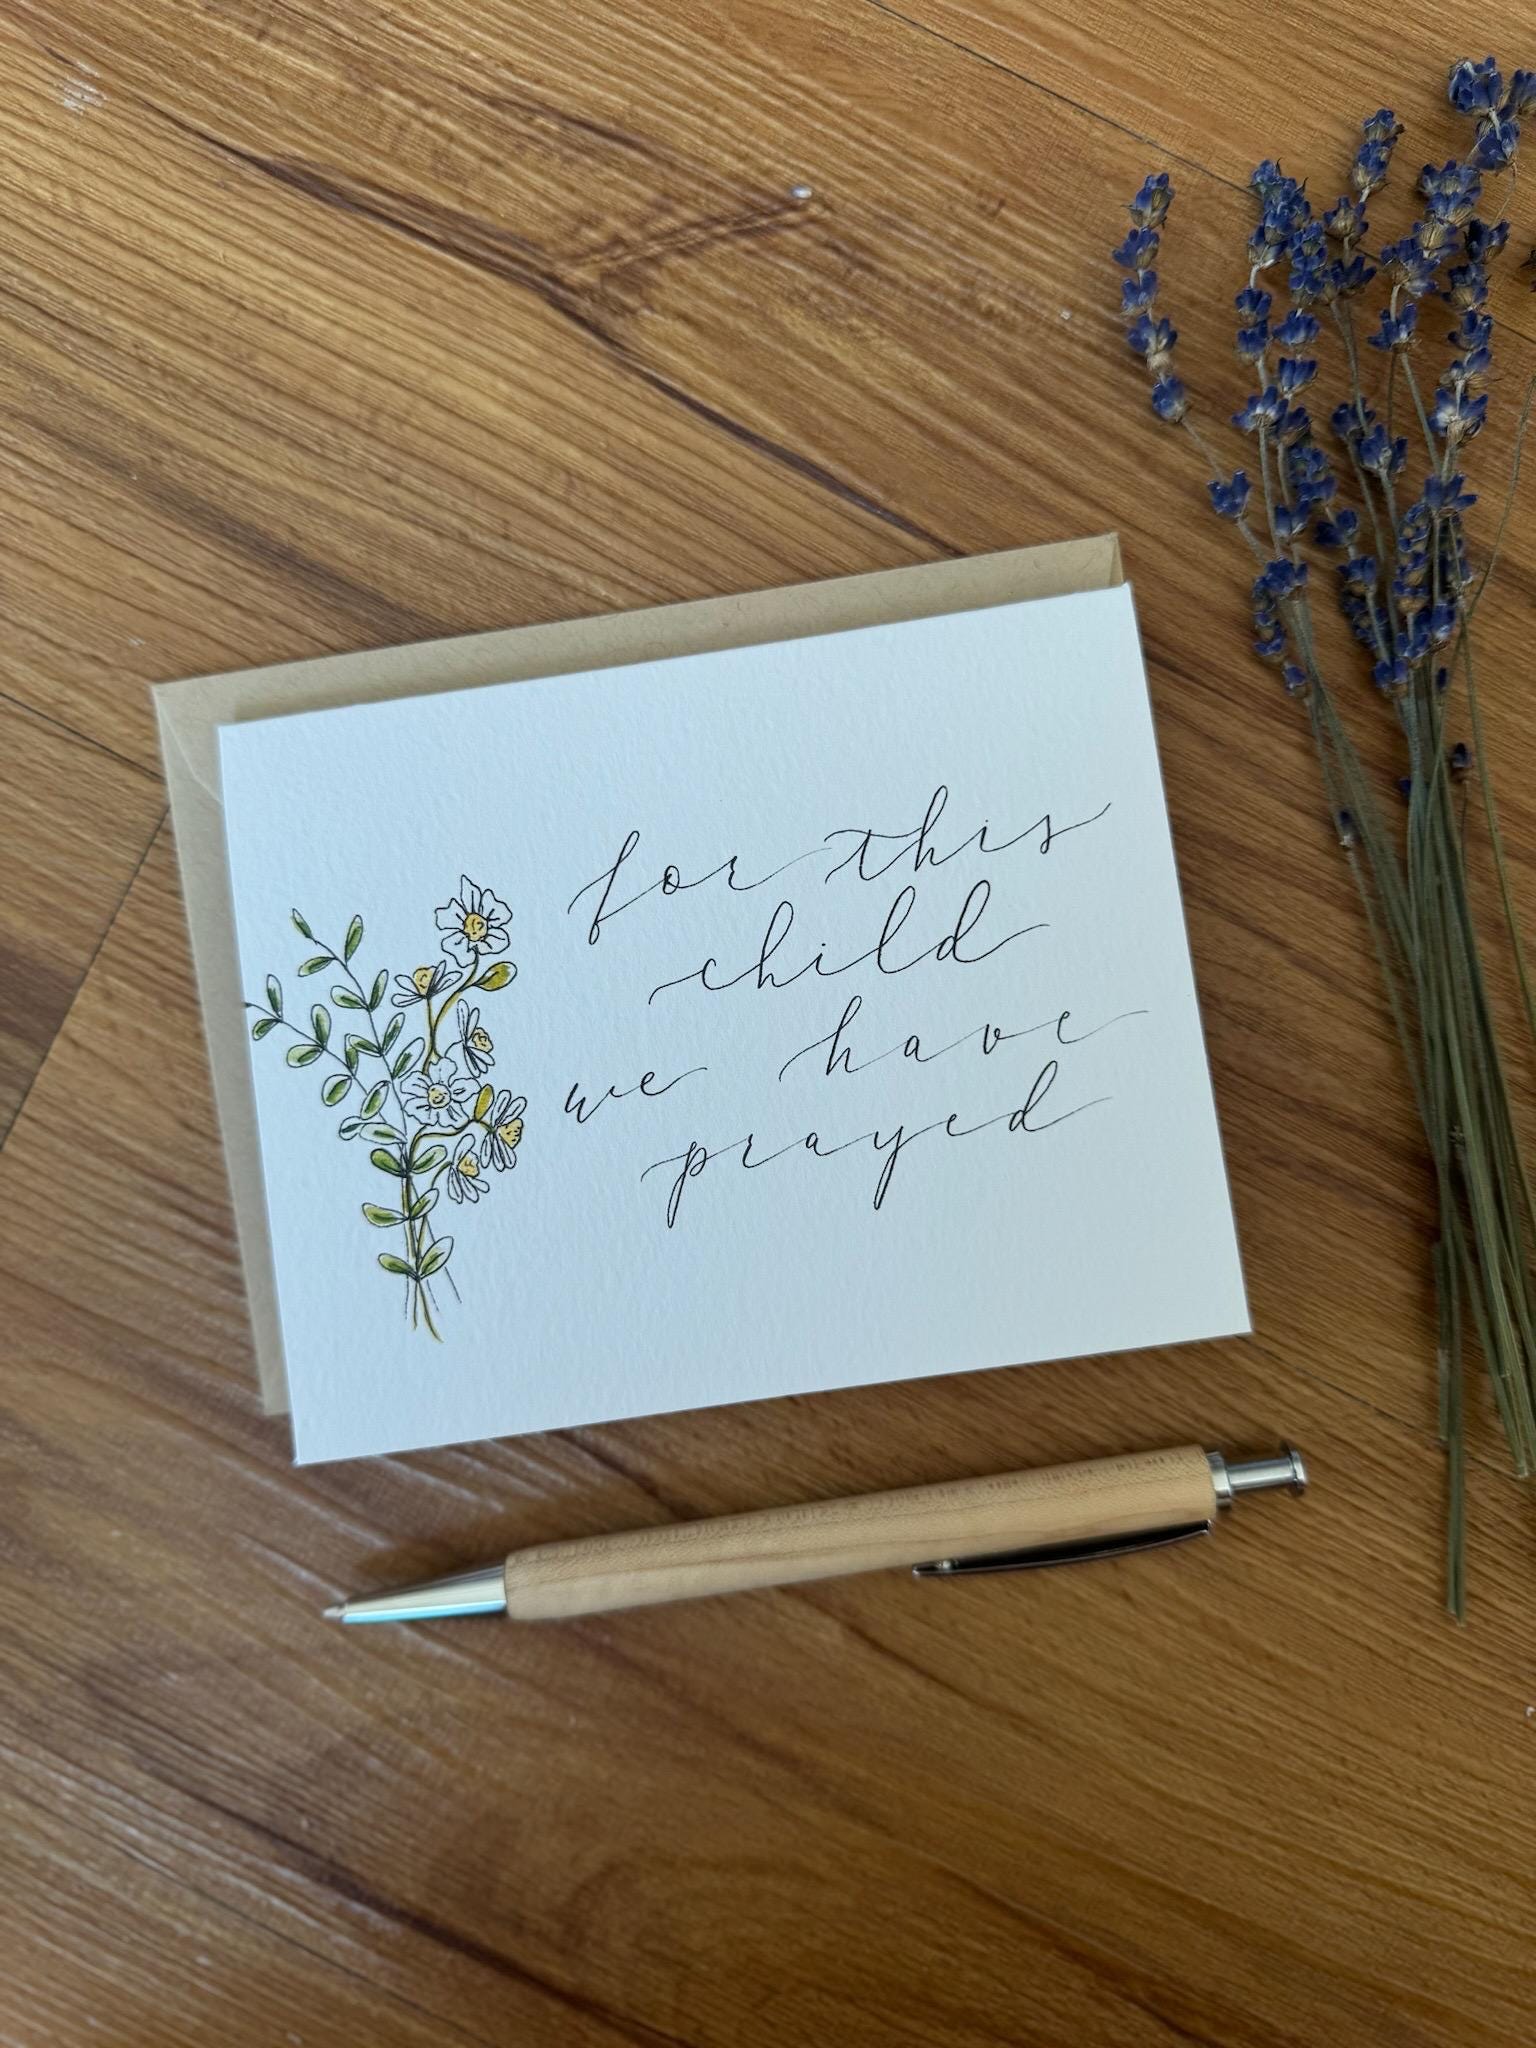 for this
child
we have
prayed